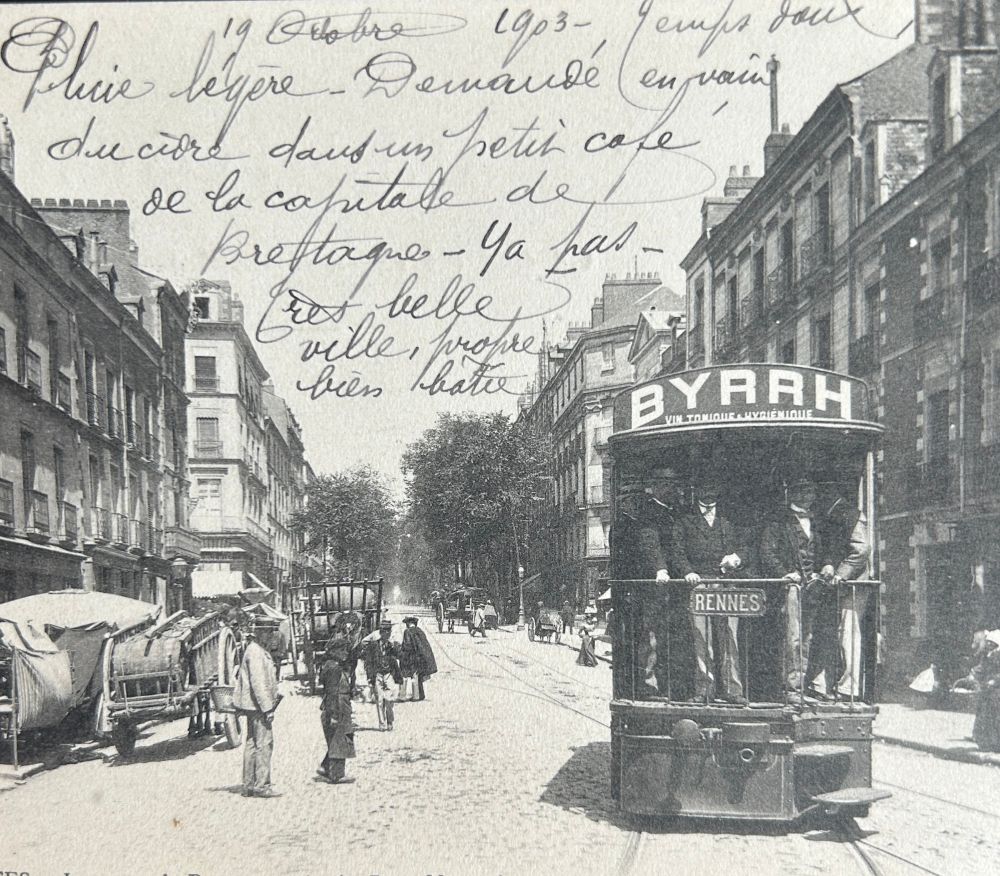 19 Octobre 1903 - Temps doux
Pluie légère - Demandé en vain
du cidre dans un petit café
de la capitale de
Bretagne - Ya pas -
Très belle
ville, propre
bien batie
BYRRH
VIN TONIQUE & HYGIÉNIQUE
RENNES